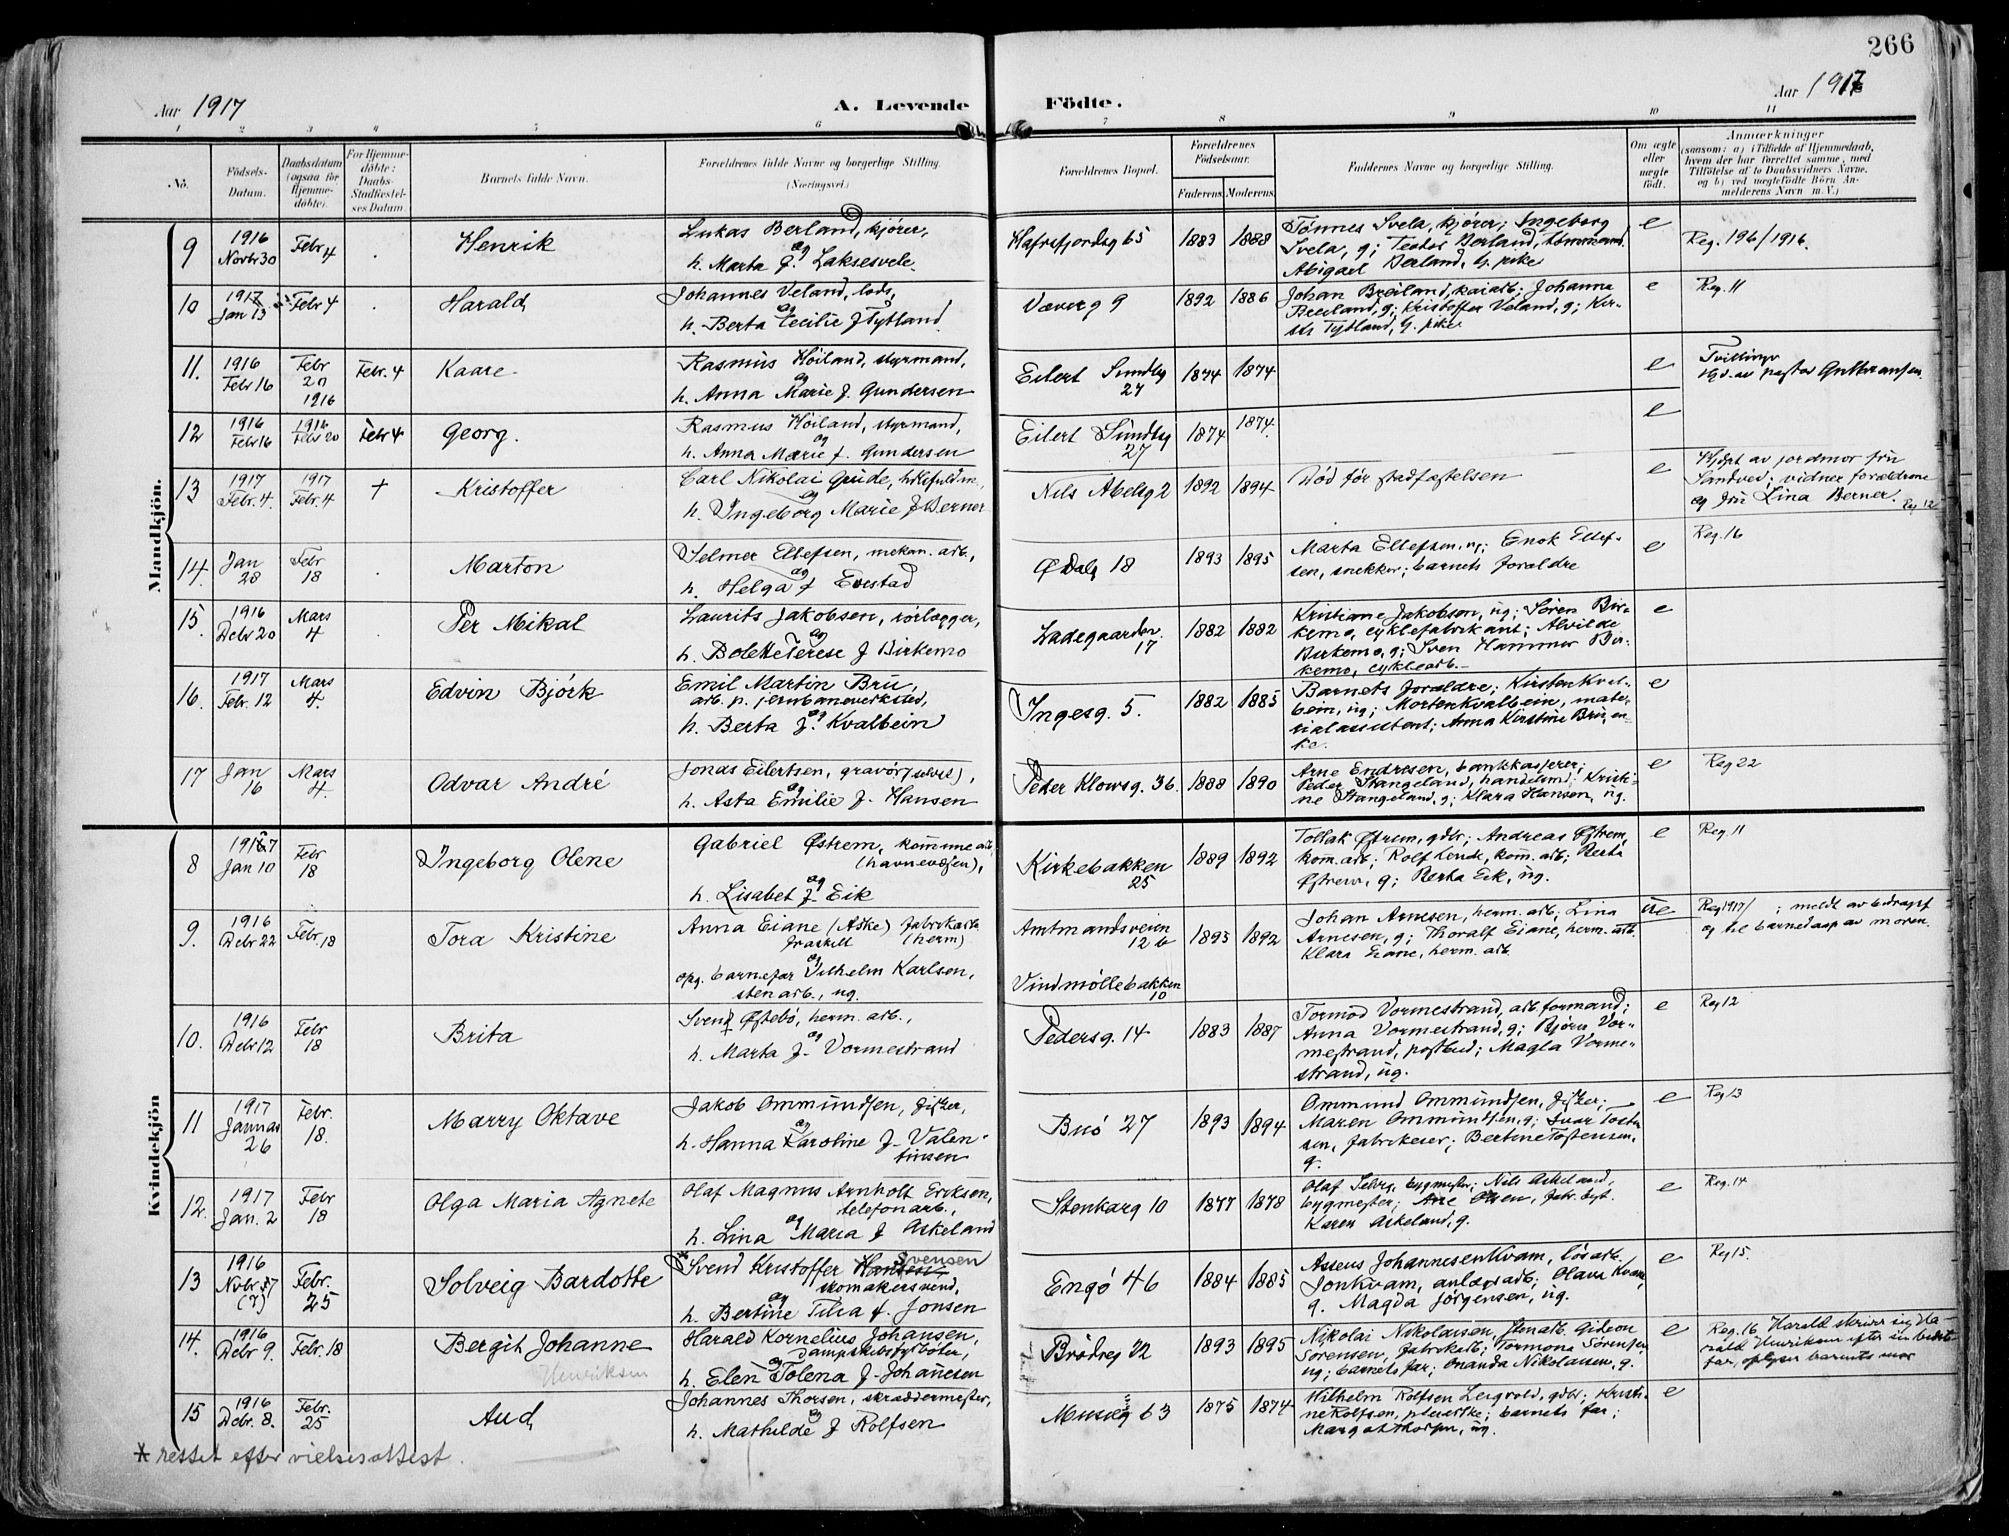 266
Aar 1917
A. Levende Födte.
Aar 1917
1 2 3 4 5 6 7 8 9 10 11
No.
Födsels-
Datum.
Daabsdatum
(ogsaa for
Hjemme-
döbte).
For Hjemme-
döbte:
Daabs-
Stadfæstel-
ses Datum.
Barnets fulde Navn.
Forældrenes fulde Navne og borgerlige Stilling.
(Næringsvei.)
Forældrenes Bopæl.
Forældrenes
Födselsaar.
Faderens. Moderens.
Faddernes Navne og borgerlige Stilling.
Om ægte
eller
uægte
født.
Anmærkninger
(saasom: a) i Tilfælde af Hjemmedaab,
hvem der har forrettet samme, med
Tilföielse af to Daabsvidners Navne,
og b) ved uægtefödte Börn An-
melderens Navn m. V.)
Mandkjön.
9
1916
Novbr 30
Febr 4
Henrik
Lukas Berland, kjører,
og
h. Marta J. Laksesvele
Hafrsfjordsg 65
1883 1888
Tønnes Svela, kjører; Ingeborg
Svela, g; Teodor Berland, tømmermd.
Abigael Berland, g. pike
e
Reg. 196/1916.
10
1917
Jan 13
Febr 4
Harald
Johannes Veland, lods,
og
h. Berta Cecilie f Tytland
Væverg 9
1892 1886
Johan Breiland, kaiarb; Johanna
Breiland, g; Kristoffer Veland, g; Kir-
sti Tytland, g. pike
e
Reg. 11
11.
1916
Febr 16
Febr
20
1916
Febr. 4
Kaare
Rasmus Høiland, styrmand,
og
h. Anna Marie f. Gundersen
Eilert Sundtsg
27
1874 1874
e
Tvillinger
av pastor
12
1916
Febr 16
1916
Febr 20
Febr 4
Georg.
Rasmus Høiland, styrmand,
og
h. Anna Marie f. Gundersen
Eilert Sundtsg
27
1874 1874.
e
13
1917
Febr. 4.
1917
Febr. 4
†
Kristoffer
Carl Nikolai Gude,
og
h. Ingeborg Marie f Berner
Nils Abelsg 2
1892 1894
Død før stadfæstelsen
e
Hjdpt av jordmor fru
Sandved; vidner forældrene
og fru Lina Berner. Reg 12
14.
Jan
28
Febr
18
Marton
Selmer Ellefsen, mekan. arb,
og
h. Helga f Evestad
Ø Dalg 18
1893 1895
Marta Ellefsen, ug; Enok Ellef-
sen, snekker; barnets forældre
e
Reg. 16
15.
1916
Debr 20
Mars
4
Per Mikal
Laurits Jakobsen, rørlægger,
og
h. Bolette Terese f Birkemo
Ladegaardsv.
17
1882 1882
Kristiane Jakobsen, ug; Søren Bir-
kemo, cyklefabrikant; Alvilde
Birkemo, g; Sven Hammer Bir-
kemo, cyklearb.
e
16.
1917
Febr. 12
Mars
4.
Edvin Bjørk
Emil Martin Bru,
arb. p. jernbaneverksted,
og
h. Berta f. Kvalbein
Ingesg. 5.
1882 1885
Barnets forældre; Kirsten Kval-
bein, ug; Morten Kvalbein, mate-
rialassistent; Anna Kirstine Bru, en-
ke.
e
17
Jan
16
Mars
4.
Odvar André
Jonas Eilertsen, gravør (selvst),
og
h. Asta Emilie f. Hansen
Peder Klowsg. 36.
1888 1890
Arne Endresen, bankkasserer;
Peder Stangeland, handelsmd; Kristi-
ne Stangeland, g; Klara Hansen, ug.
e
Reg 22
Kvindekjön
8
1917
Jan 10
Febr
18
Ingeborg Olene
Gabriel Østrem, kommune arb
(havnevæsen),
og
h. Lisabet f. Eik
Kirkebakken
25
1889 1892
Tollak Østrem, gdbr; Andreas Østrem,
kom. arb; Rolf Lende, kom. arb; Berta
Østrem, g; Berta Eik, ug.
e
Reg. 11
9.
1916
Debr 22
Febr 18
Tora Kristine
Anna Eiane (Aske) fabrikarb
fraskilt (herm)
og
opg. barnefar Vilhelm Karlsen,
stenarb., ug.
Amtmandsveien
12 b
Vindmøllebakken
10
1895 1892
Johan Arnesen, herm. arb; Lina
Arnesen, g; Thoralf Eiane, herm. arb.
Klara Eiane, herm. arb
ue
Reg 1917/ ; meldt av bidragsf
og til barnedaap av moren.
10.
1916
Debr 12
Febr
18
Brita
Svend Østebø, herm. arb.,
og
h. Marta f. Vormestrand
Pedersg. 14
1883 1887
Tormod Vormestrand, arb.formand;
Anna Vormestrand, g; Bjørn Vor-
mestrand, postbud; Magla Vorme-
strand, ug.
e
Reg 12
11
1917
Januar
26
Febr.
18.
Marry Oktave
Jakob Ommundsen, fisker,
og
h. Hanna Karoline f. Valen-
tinsen
Buø 27
1893 1894
Ommund Ommundsen, fisker;
Maren Ommundsen, g; Ivar Toste
sen, fabrikeier; Bertine Tostensen,
g.
e
Reg 13
12.
1917
Jan. 2
Febr
18
Olga Maria Agnete
Olaf Magnus Arnholt Eriksen,
telefonarb.,
og
h. Lina Maria f Askeland
Stenkarg 10
1877 1878
Olaf , bygmester; Nils Askeland,
bygmester; Olsen, fabr. best.
Karen Askeland, g.
e
Reg. 14
13
1916
Novbr 5/
(7)
Febr.
25
Solveig Bardotte
* Svend Kristoffer Hansen Svensen
skomakersvend,
og
h. Bertine Tilia f. Jonsen
Engø 46
1884 1885
Asseus Johannesen Kvam, løsarb.
Jon Kvam, anlægsarb; Olava Kvam,
g. Magda Jørgensen, ug.
e
Reg 15.
14.
1916
Debr 9.
Febr. 18
Bergit Johanne
Henriksen
Harald Kornelius Johansen,
dampskibsfyrbøter,
og
h. Elen Tolena f. Johanesen
Brødreg 22
1893 1895
Nikolai Nikolaisen, stenarb. Gideon
Sørensen, fabrikarb; Tormona Sørensen
ug; barnets far; Ananda Nikolaisen, g.
e
Reg. 16. Harald skriver sig Ha-
rald Henriksen efter sin bedste
far, oplyser barnets mor
15
1916
Debr. 8.
Febr.
25
Aud
Johannes Thorsen, skræddermester,
og
h. Mathilde f Rolfsen
Museg 63
1875 1874
Vilhelm Rolfsen Leigvold, gdbr; Kristi-
ne Rolfsen, pleierske; barnets far;
Margot Thorsen, ug.
e
* rettet efter vielsesattest.